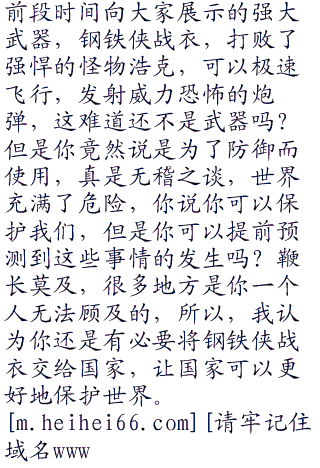 前段时间向大家展示的强大
武器，钢铁侠战衣，打败了
强悍的怪物浩克，可以极速
飞行，发射威力恐怖的炮
弹，这难道还不是武器吗？
但是你竟然说是为了防御而
使用，真是无稽之谈，世界
充满了危险，你说你可以保
护我们，但是你可以提前预
测到这些事情的发生吗？鞭
长莫及，很多地方是你一个
人无法顾及的，所以，我认
为你还是有必要将钢铁侠战
衣交给国家，让国家可以更
好地保护世界。
[m.heihei66.com][请牢记住
域名www